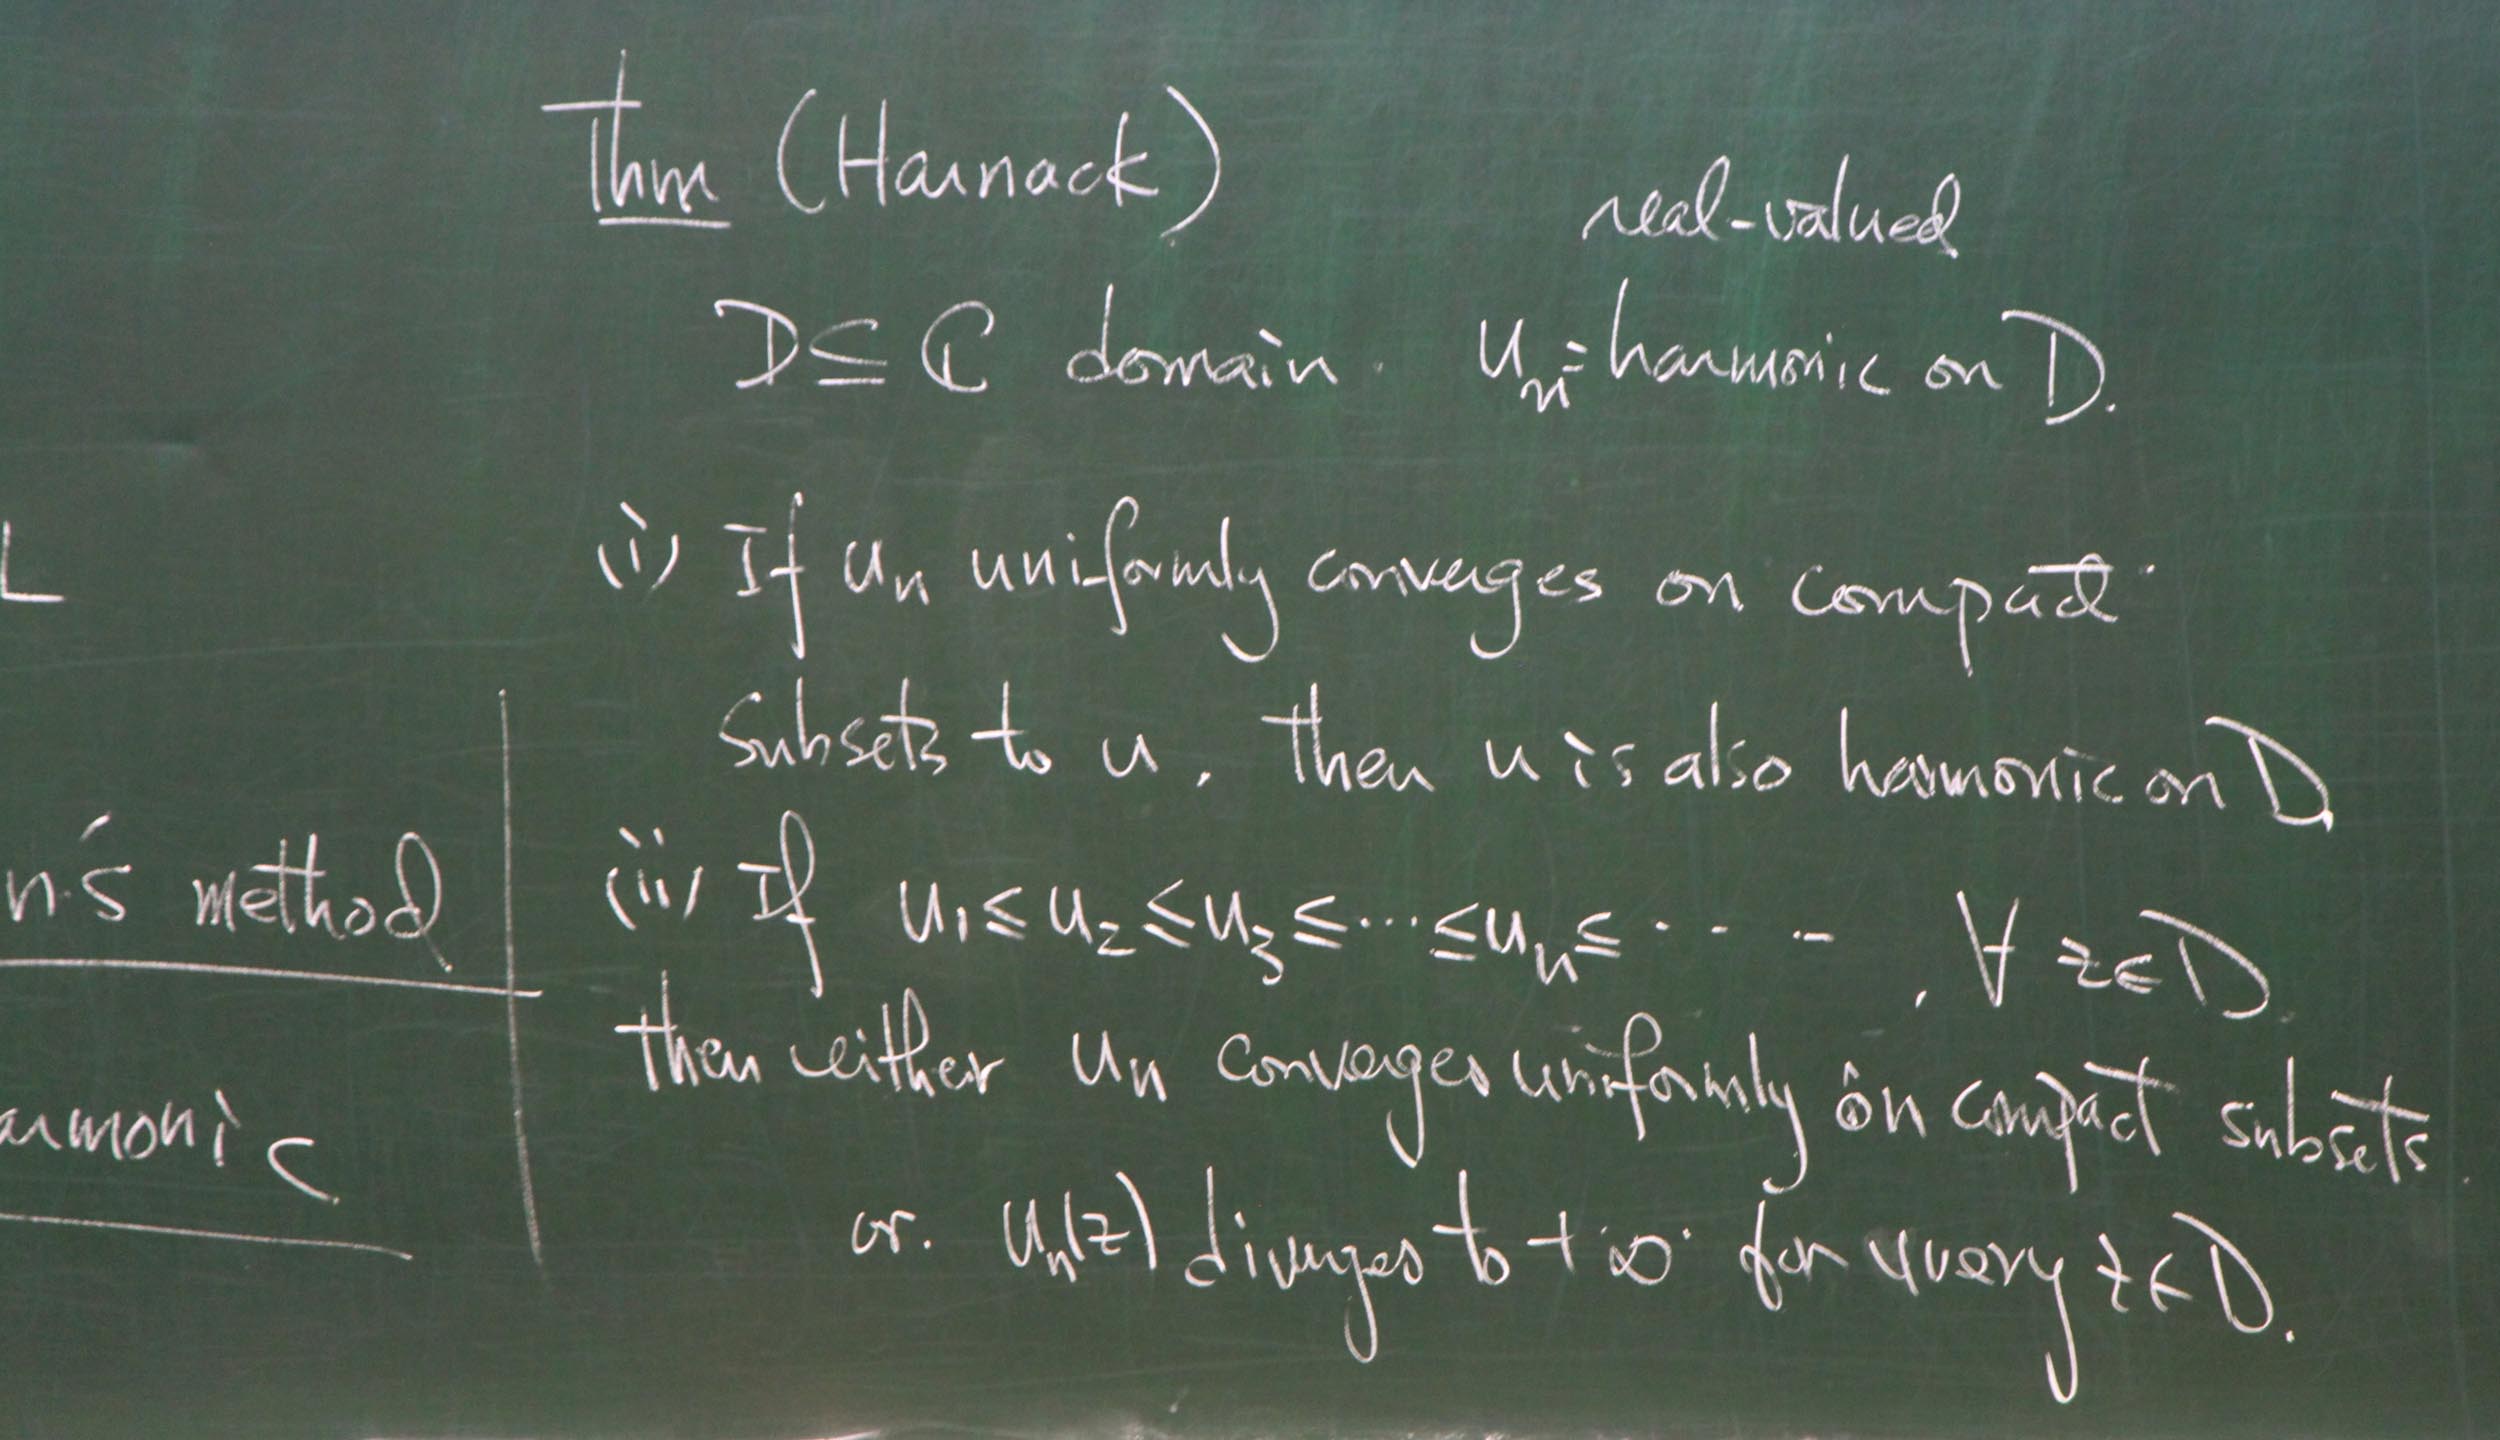 Thm (Harnack)
real-valued
D ⊆ ℂ domain. uₙ = harmonic on D.
(i) If uₙ uniformly converges on compact
subsets to u. then u is also harmonic on D
(ii) If u₁ ≤ u₂ ≤ u₃ ≤ ··· ≤ uₙ ≤ ···, ∀ z ∈ D.
then either uₙ converges uniformly on compact subsets.
or. uₙ(z) diverges to +∞ for every z ∈ D.
L
n's method
armonic